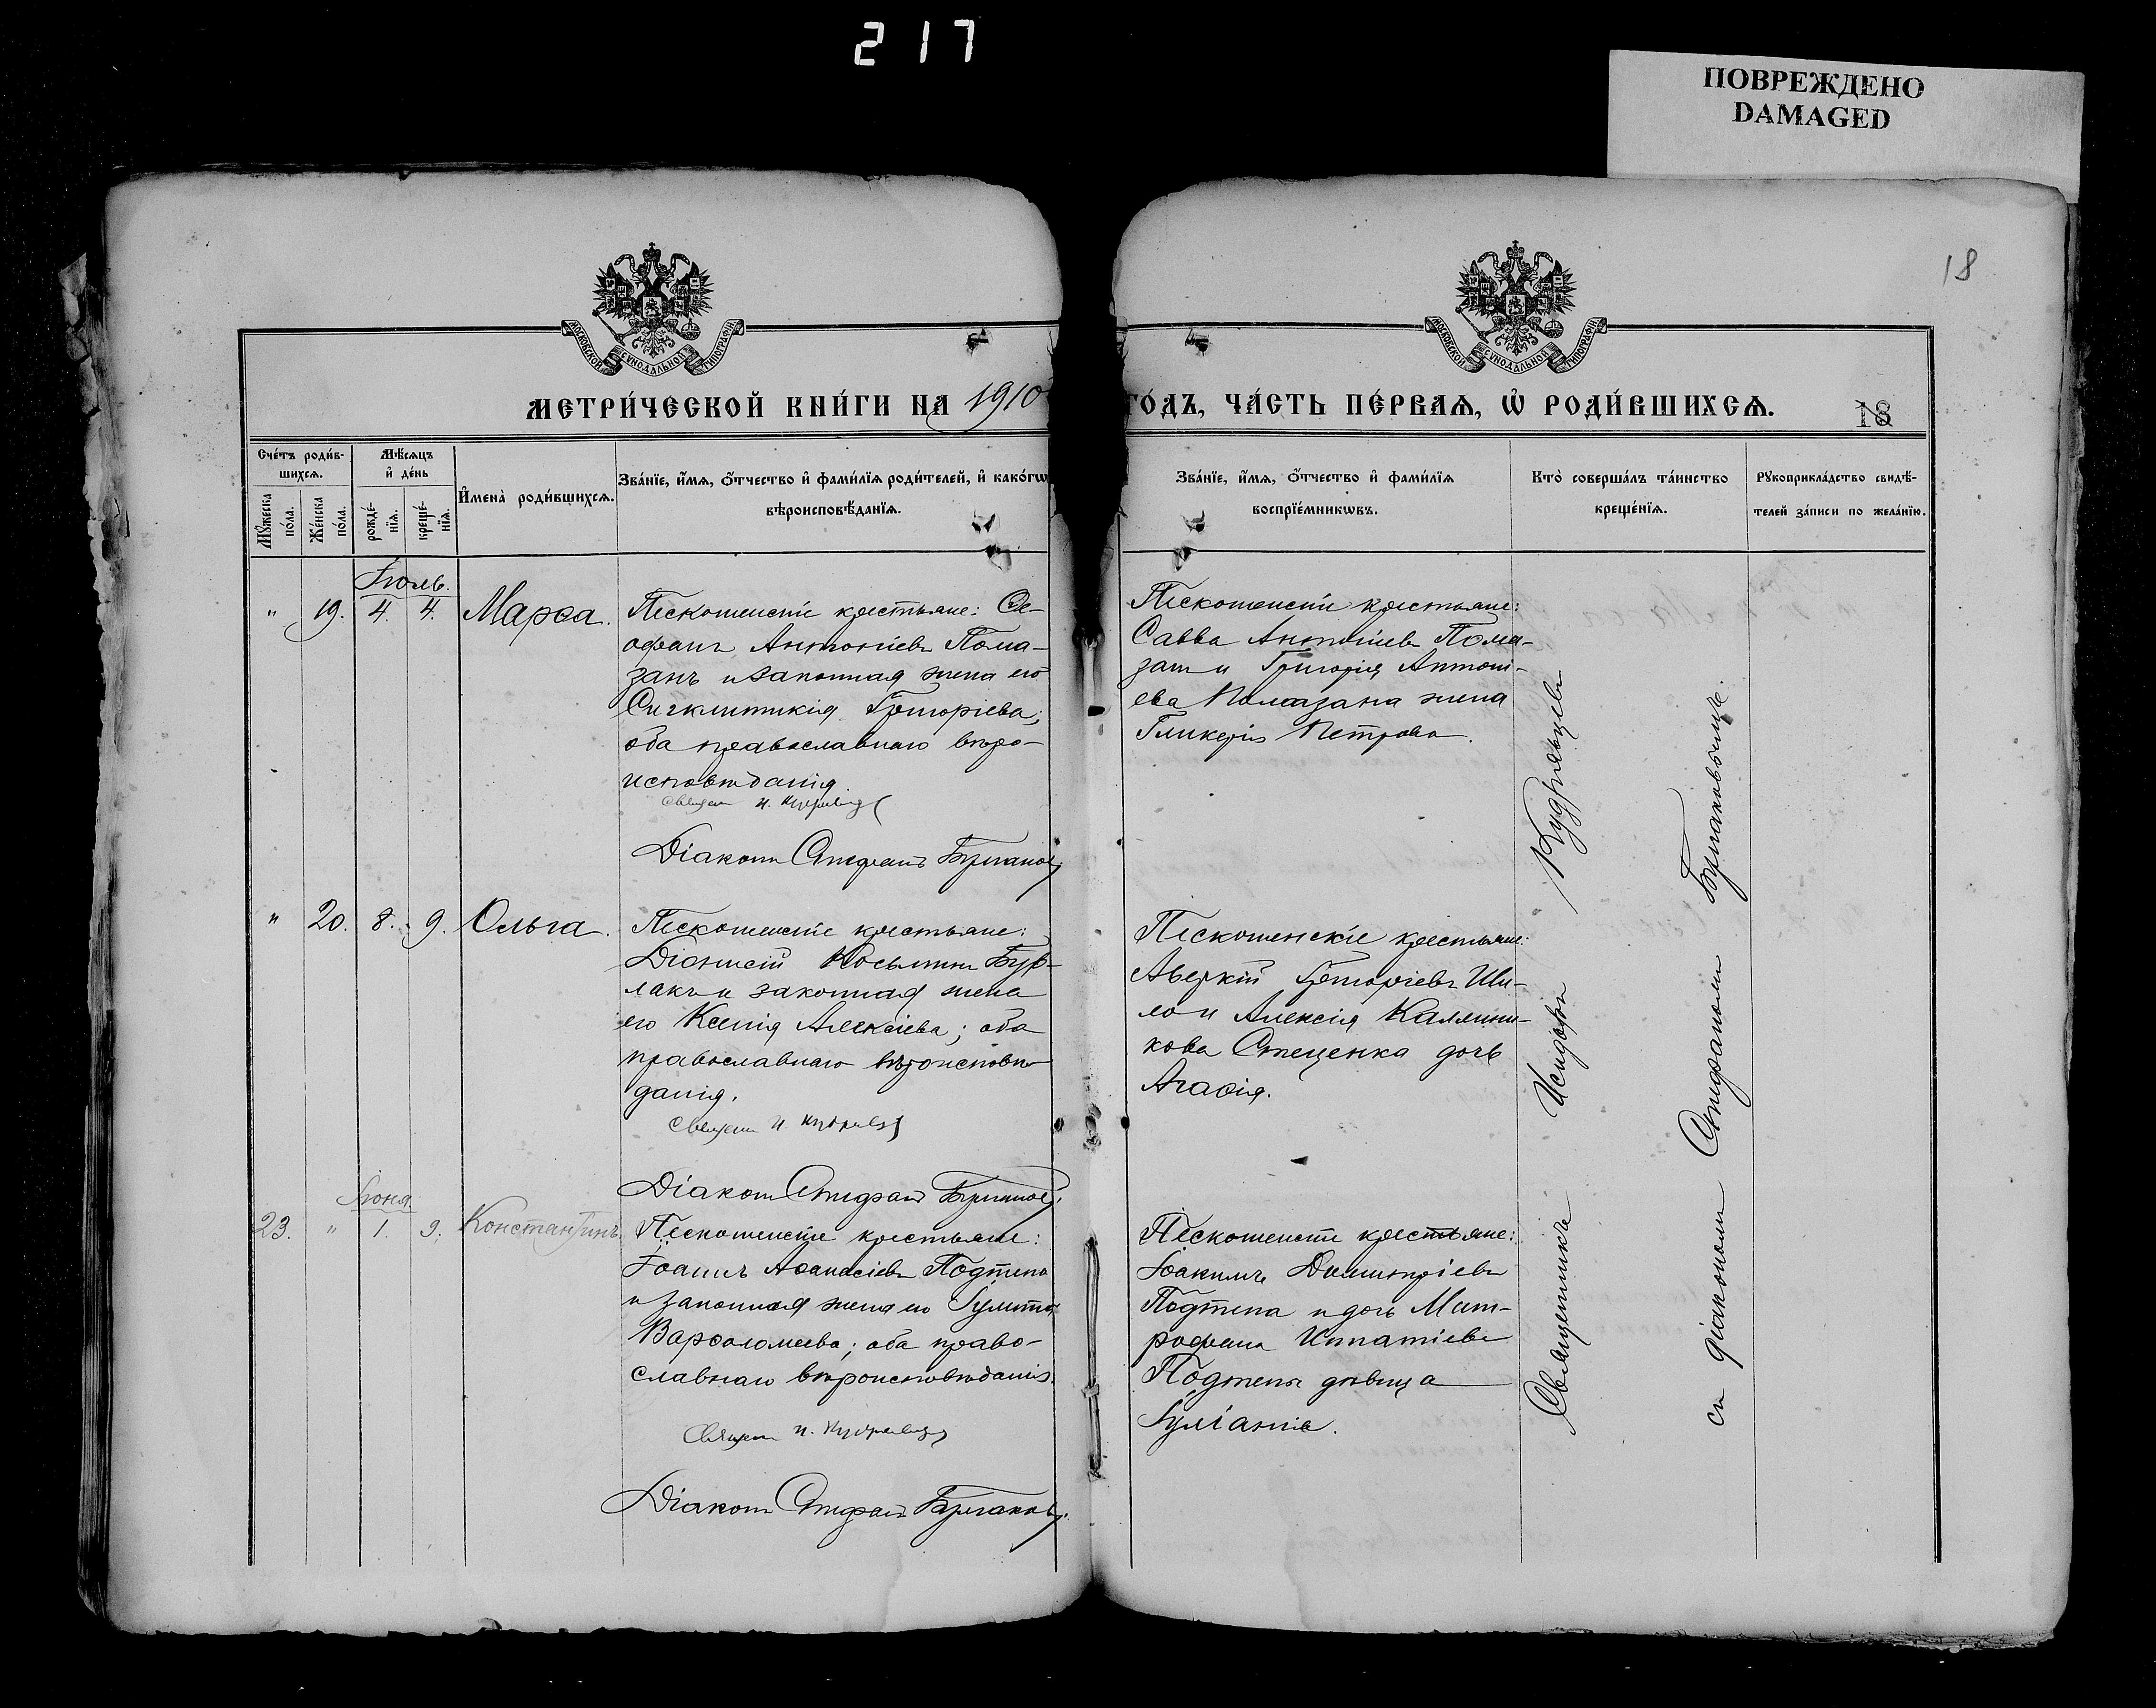 217
ПОВРЕЖДЕНО
DAMAGED
18
МОСКОВСКОЙ СѴНОДАЛЬНОЙ ТИПОГРАФІИ
МОСКОВСКОЙ СѴНОДАЛЬНОЙ ТИПОГРАФІИ
МЕТРИ́ЧЕСКОЙ КНИ́ГИ НА 1910
ГО́ДЪ, ЧА́СТЬ ПЕ́РВАЯ, Ѡ҆ РОДИ́ВШИХСЯ.
18
Сче́тъ роди́в-
шихся.
Мѣ́сяцъ
и҆ де́нь
Мꙋ́жеска
по́ла.
Же́нска
по́ла.
рожде́-
нїя.
креще́-
нїя.
И҆мена̀ роди́вшихся.
Зва́нїе, и҆́мя, ѻ҆́тчество и҆ фами́лїя роди́телей, и҆ како́гѡ
вѣроисповѣ́данїя.
Зва́нїе, и҆́мя, ѻ҆́тчество и҆ фами́лїя
воспрїе́мникѡвъ.
Кто̀ соверша́лъ та́инство
креще́нїя.
Рꙋкоприкла́дство свидѣ́-
телей за́писи по жела́нїю.
Іюль.
" 19. 4. 4. Марѳа.
Пескошенскіе крестьяне: Ѳе-
офанъ Антоніевъ Пома-
занъ и законная жена его
Сигклитикія Григоріева;
оба православнаго вѣро-
исповѣданія.
Священ И. Кудрявцев
Діаконъ Стефанъ Бурлаков
Пескошенскіе крестьяне:
Савва Антоніевъ Пома-
занъ и Григорія Антоні-
ева Помазана жена
Гликерія Петрова.
" 20. 8. 9. Ольга.
Пескошенскіе крестьяне:
Діонисій Косьминъ Бур-
лакъ и законная жена
его Ксенія Алексіева; оба
православнаго вѣроисповѣ-
данія.
Священ И. Кудрявц
Діаконъ Стефанъ
Пескошенскіе крестьяне:
Аверкій Григоріевъ Ши-
ло и Алексія Каллини-
кова Стеценка дочь
Агаѳія.
Іюня.
23. " 1. 9. Константинъ.
Пескошенскіе крестьяне:
Іоаннъ Аѳанасіевъ Подтепа
и законная жена его Іулитта
Варѳоломеева; оба право-
славнаго вѣроисповѣданія.
Священ И. Кудрявцев
Діаконъ Стефанъ Бурлаков
Пескошенскіе крестьяне:
Іоакимъ Димитріевъ
Подтепа и дочь Мит-
рофана Игнатіева
Подтепы дѣвица
Іуліанія.
Священникъ Исидоръ Кудрявцевъ
съ діакономъ Стефаномъ